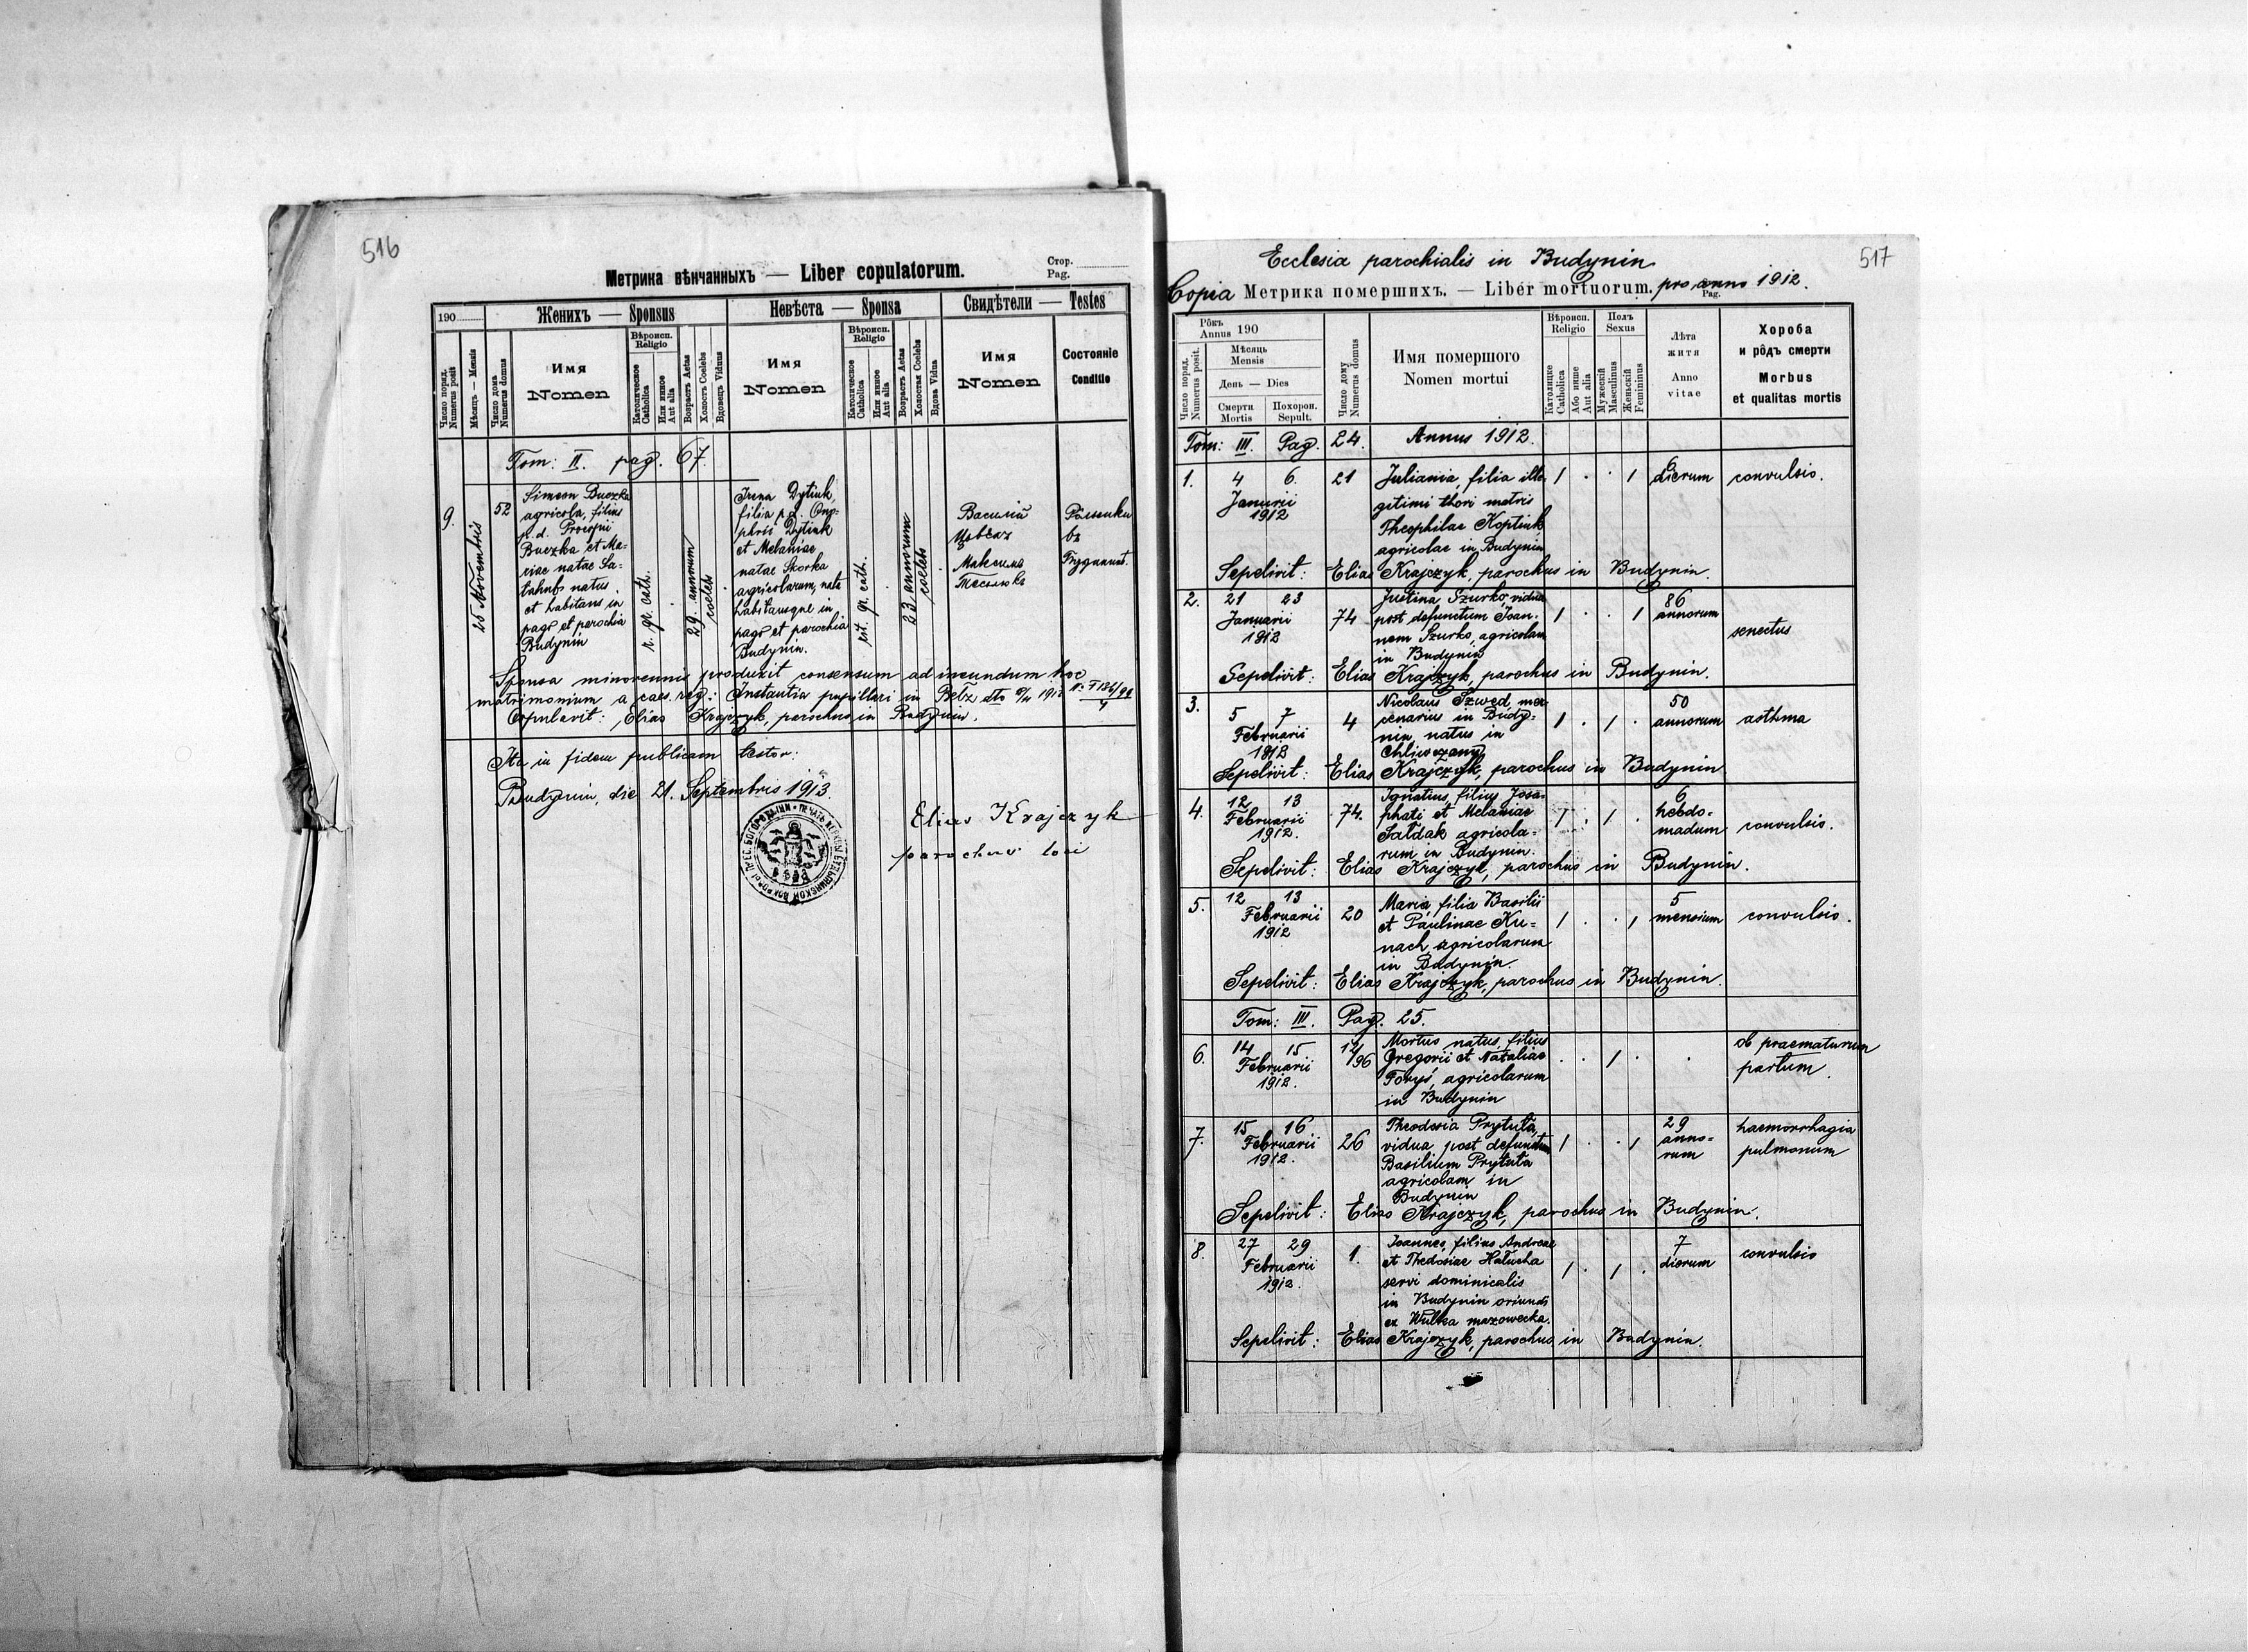 516
Метрика вѣнчанныхъ — Liber copulatorum.
Стор.
Pag.
190
Женихъ — Sponsus
Невѣста — Sponsa
Свидѣтели — Testes
Число поряд.
Numerus posit
Мѣсяць — Mensis
Число дома
Numerus domus
Имя
Nomen
Вѣроисп.
Religio
Католическое
Catholica
Или инное
Aut alia
Возрастъ Aetas
Холостъ Coelebs
Вдовецъ Viduus
Имя
Nomen
Вѣроисп.
Religio
Католическое
Catholica
Или инное
Aut alia
Возрастъ Aetas
Холостая Coelebs
Вдова Vidua
Имя
Nomen
Состояніе
Conditio
Tom: II. pag. 67.
9.
25 Novembris
52
Simeon Buczka
agricola, filius
p. d. Procopii
Buczka et Ma-
riae natae
natus
et habitans in
pago et parochia
Budynin
r. gr. cath.
29 annorum
coelebs
Irena Dytiuk,
filia p. d. Ono-
phrii Dytiuk
et Melaniae
natae Skorka
agricolarum, nata
habitansque in
pago et parochia
Budynin.
rit. gr. cath.
23 annorum
coelebs
Василій
Максимъ
въ
Sponsa minorennis produxit consensum ad ineundum hoc
matrimonium a caes. reg: Instantia pupillari in Bełz dto 1912
Copulavit: Elias Krajczyk, parochus in Budynin.
Ita in fidem publicam testor:
Budynin, die 21. Septembris 1913.
Elias Krajczyk
parochus loci
517
Ecclesia parochialis in Budynin
Copia Метрика помершихъ. — Liber mortuorum. pro anno 1912.
Pag.
Рôкъ
Annus 190
Число поряд.
Numerus posit.
Мѣсяць
Mensis
День — Dies
Смерти
Mortis
Похорон.
Sepult.
Число дому
Numerus domus
Имя помершого
Nomen mortui
Вѣроисп.
Religio
Католицке
Catholica
Або инше
Aut alia
Полъ
Sexus
Мужескій
Masculinus
Женьскій
Femininus
Лѣта
житя
Anno
vitae
Хороба
и рôдъ смерти
Morbus
et qualitas mortis
Tom: III. Pag. 24. Annus 1912.
1.
4 6.
Januarii
1912
21
Juliania, filia ille-
gitimi thori matris
Theophilae Koptiuk
agricolae in Budynin
1 . . 1
6
dierum
convulsio.
Sepelivit: Elias Krajczyk, parochus in Budynin.
2.
21 23
Januarii
1912
74
Justina Szurko, vidua
post defunctum Joan-
nem Szurko, agricolam
in Budynin
1 . . 1
86
annorum
senectus
Sepelivit: Elias Krajczyk, parochus in Budynin.
3.
5 7
Februarii
1912
4
Nicolaus Szwed, mer-
cenarius in Budy-
nin, natus in
Chliwczany
1 . 1 .
50
annorum
asthma
Sepelivit: Elias Krajczyk, parochus in Budynin.
4.
12 13
Februarii
1912.
74.
Ignatius, filius Josa-
phati et Melaniae
Sałdak agricola-
rum in Budynin.
1 . 1 .
6
hebdo-
madum
convulsio.
Sepelivit: Elias Krajczyk, parochus in Budynin.
5.
12 13
Februarii
1912
20
Maria, filia Basilii
et Paulinae Ku-
nach agricolarum
in Budynin.
1 . . 1
5
mensium
convulsio.
Sepelivit: Elias Krajczyk, parochus in Budynin.
Tom: III. Pag. 25.
6.
14 15
Februarii
1912.
96
Mortus natus, filius
Gregorii et Nataliae
Forys, agricolarum
in Budynin
. . 1 .
.
ob praematurum
partum.
7.
15 16
Februarii
1912.
26
Theodosia Prytuła,
vidua post defunctum
Basilium Prytuła
agricolam in
Budynin
1 . . 1
29
anno-
rum
haemorrhagia
pulmonum
Sepelivit: Elias Krajczyk, parochus in Budynin.
8.
27 29
Februarii
1912.
1.
Joannes, filius Andreae
et Thedosiae Hałucha
servi dominicalis
in Budynin oriundi
ex Wulka mazowecka.
1 . 1 .
7
dierum
convulsio
Sepelivit: Elias Krajczyk, parochus in Budynin.